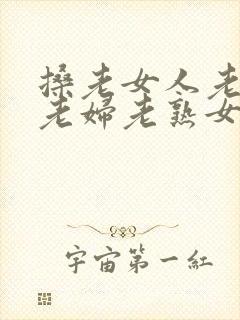 搡老女人老
老妇老熟女
宇宙第一红